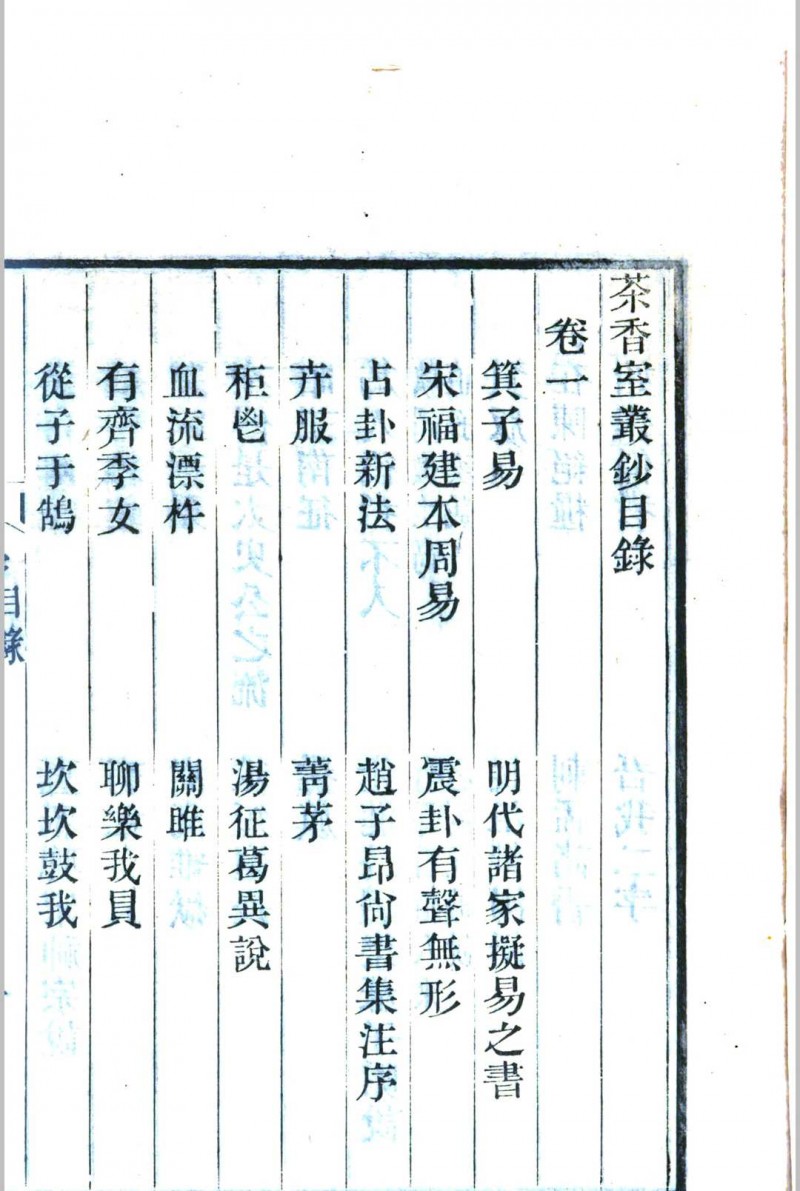 茶香室叢鈔目錄
卷一
箕子易 明代諸家擬易之書
宋福建本周易 震卦有聲無形
占卦新法 趙子昂尙書集注序
卉服 菁茅
秬鬯 湯征葛異說
血流漂杵 關雎
有齊季女 聊樂我員
從子于鵠 坎坎鼓我
目錄